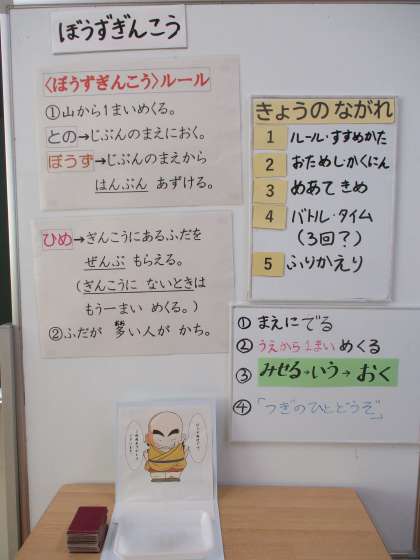 ぼうずぎんこう
〈ぼうずぎんこう〉ルール
①山から1まいめくる。
との→じぶんのまえにおく。
ぼうず→じぶんのまえから
はんぶん あずける。
ひめ→ぎんこうにあるふだを
ぜんぶ もらえる。
(ぎんこうに ないときは
もう一まい めくる。)
②ふだが 多い人が かち。
きょうの ながれ
1 ルール・すすめかた
2 おためし・かくにん
3 めあて きめ
4 バトル・タイム
(3回?)
5 ふりかえり
① まえに でる
② うえから1まい めくる
③ みせる→いう→ おく
④「つぎのひとどうぞ」